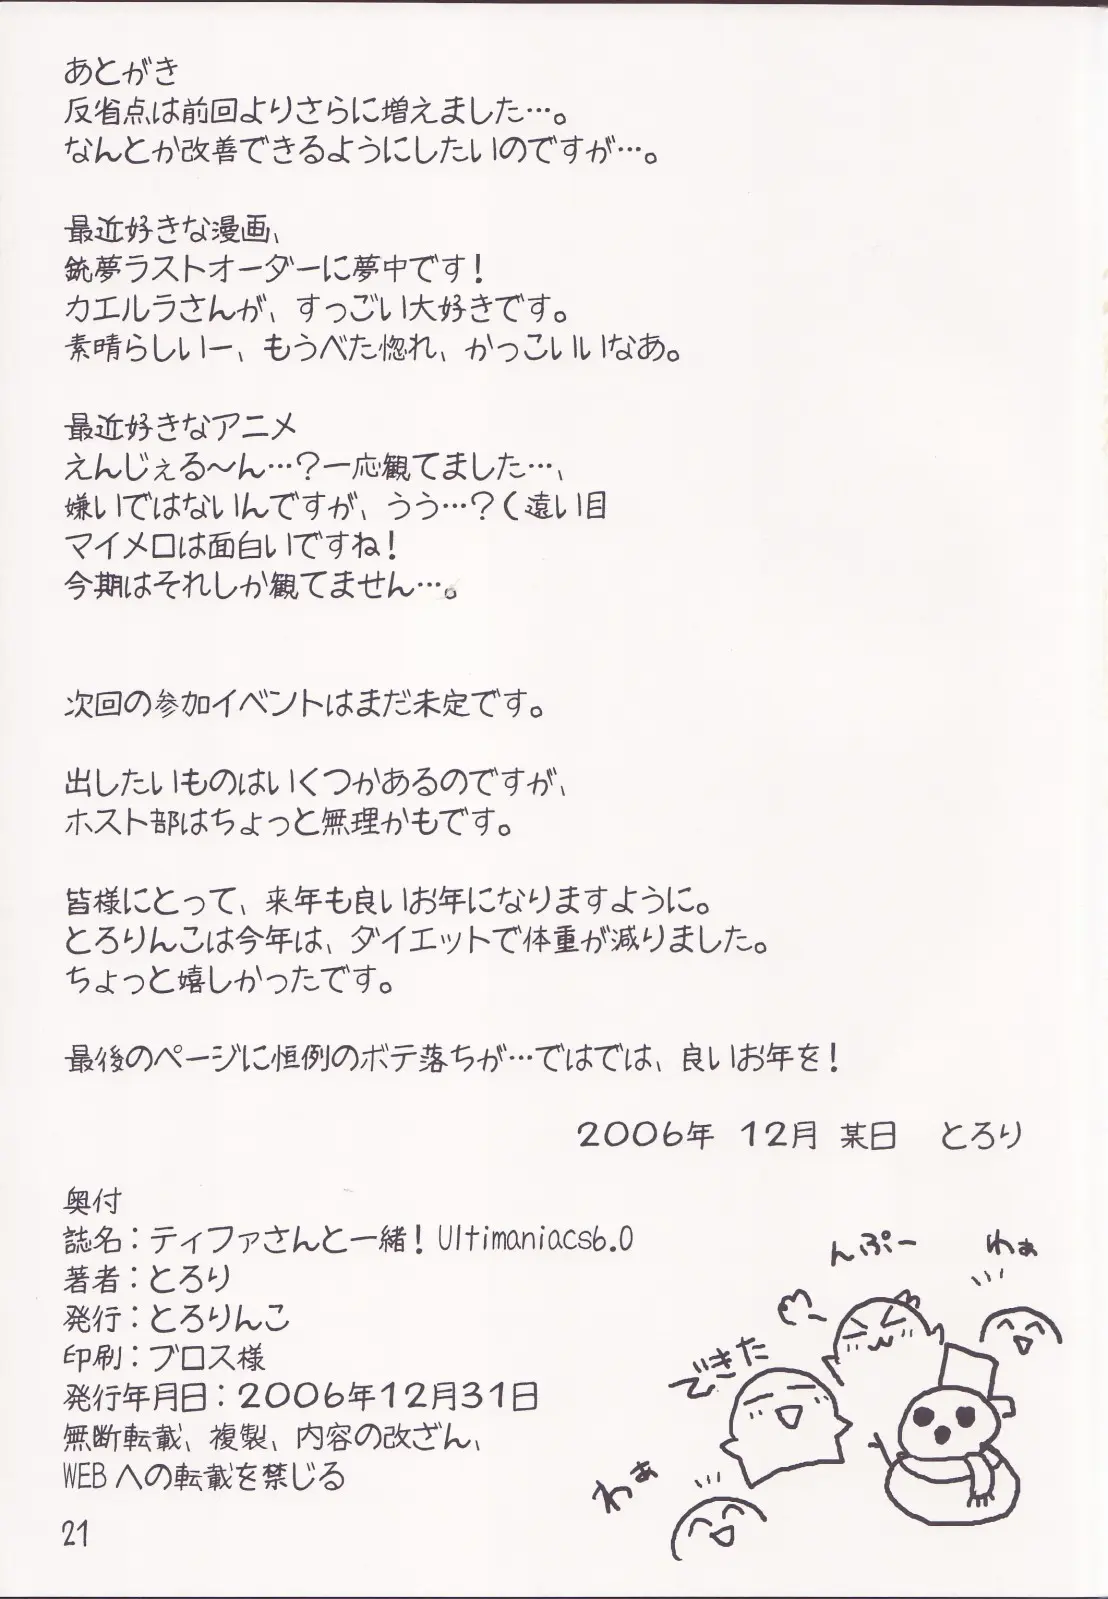 あとがき
反省点は前回よりさらに増えました…。
なんとか改善できるようにしたいのですが…。
最近好きな漫画、
銃夢ラストオーダーに夢中です！
カエルラさんが、すっごい大好きです。
素晴らしいー、もうべた惚れ、かっこいいなあ。
最近好きなアニメ
えんじぇる～ん…？一応観てました…、
嫌いではないんですが、うう…？（遠い目
マイメロは面白いですね！
今期はそれしか観てません…。
次回の参加イベントはまだ未定です。
出したいものはいくつかあるのですが、
ホスト部はちょっと無理かもです。
皆様にとって、来年も良いお年になりますように。
とろりんこは今年は、ダイエットで体重が減りました。
ちょっと嬉しかったです。
最後のページに恒例のボテ落ちが…ではでは、良いお年を！
２００６年　１２月　某日　とろり
奥付
誌名：ティファさんと一緒！Ultimaniacs6.0
著者：とろり
発行：とろりんこ
印刷：ブロス様
発行年月日：２００６年１２月３１日
無断転載、複製、内容の改ざん、
WEBへの転載を禁じる
んぷー
わぁ
できた
わぁ
21